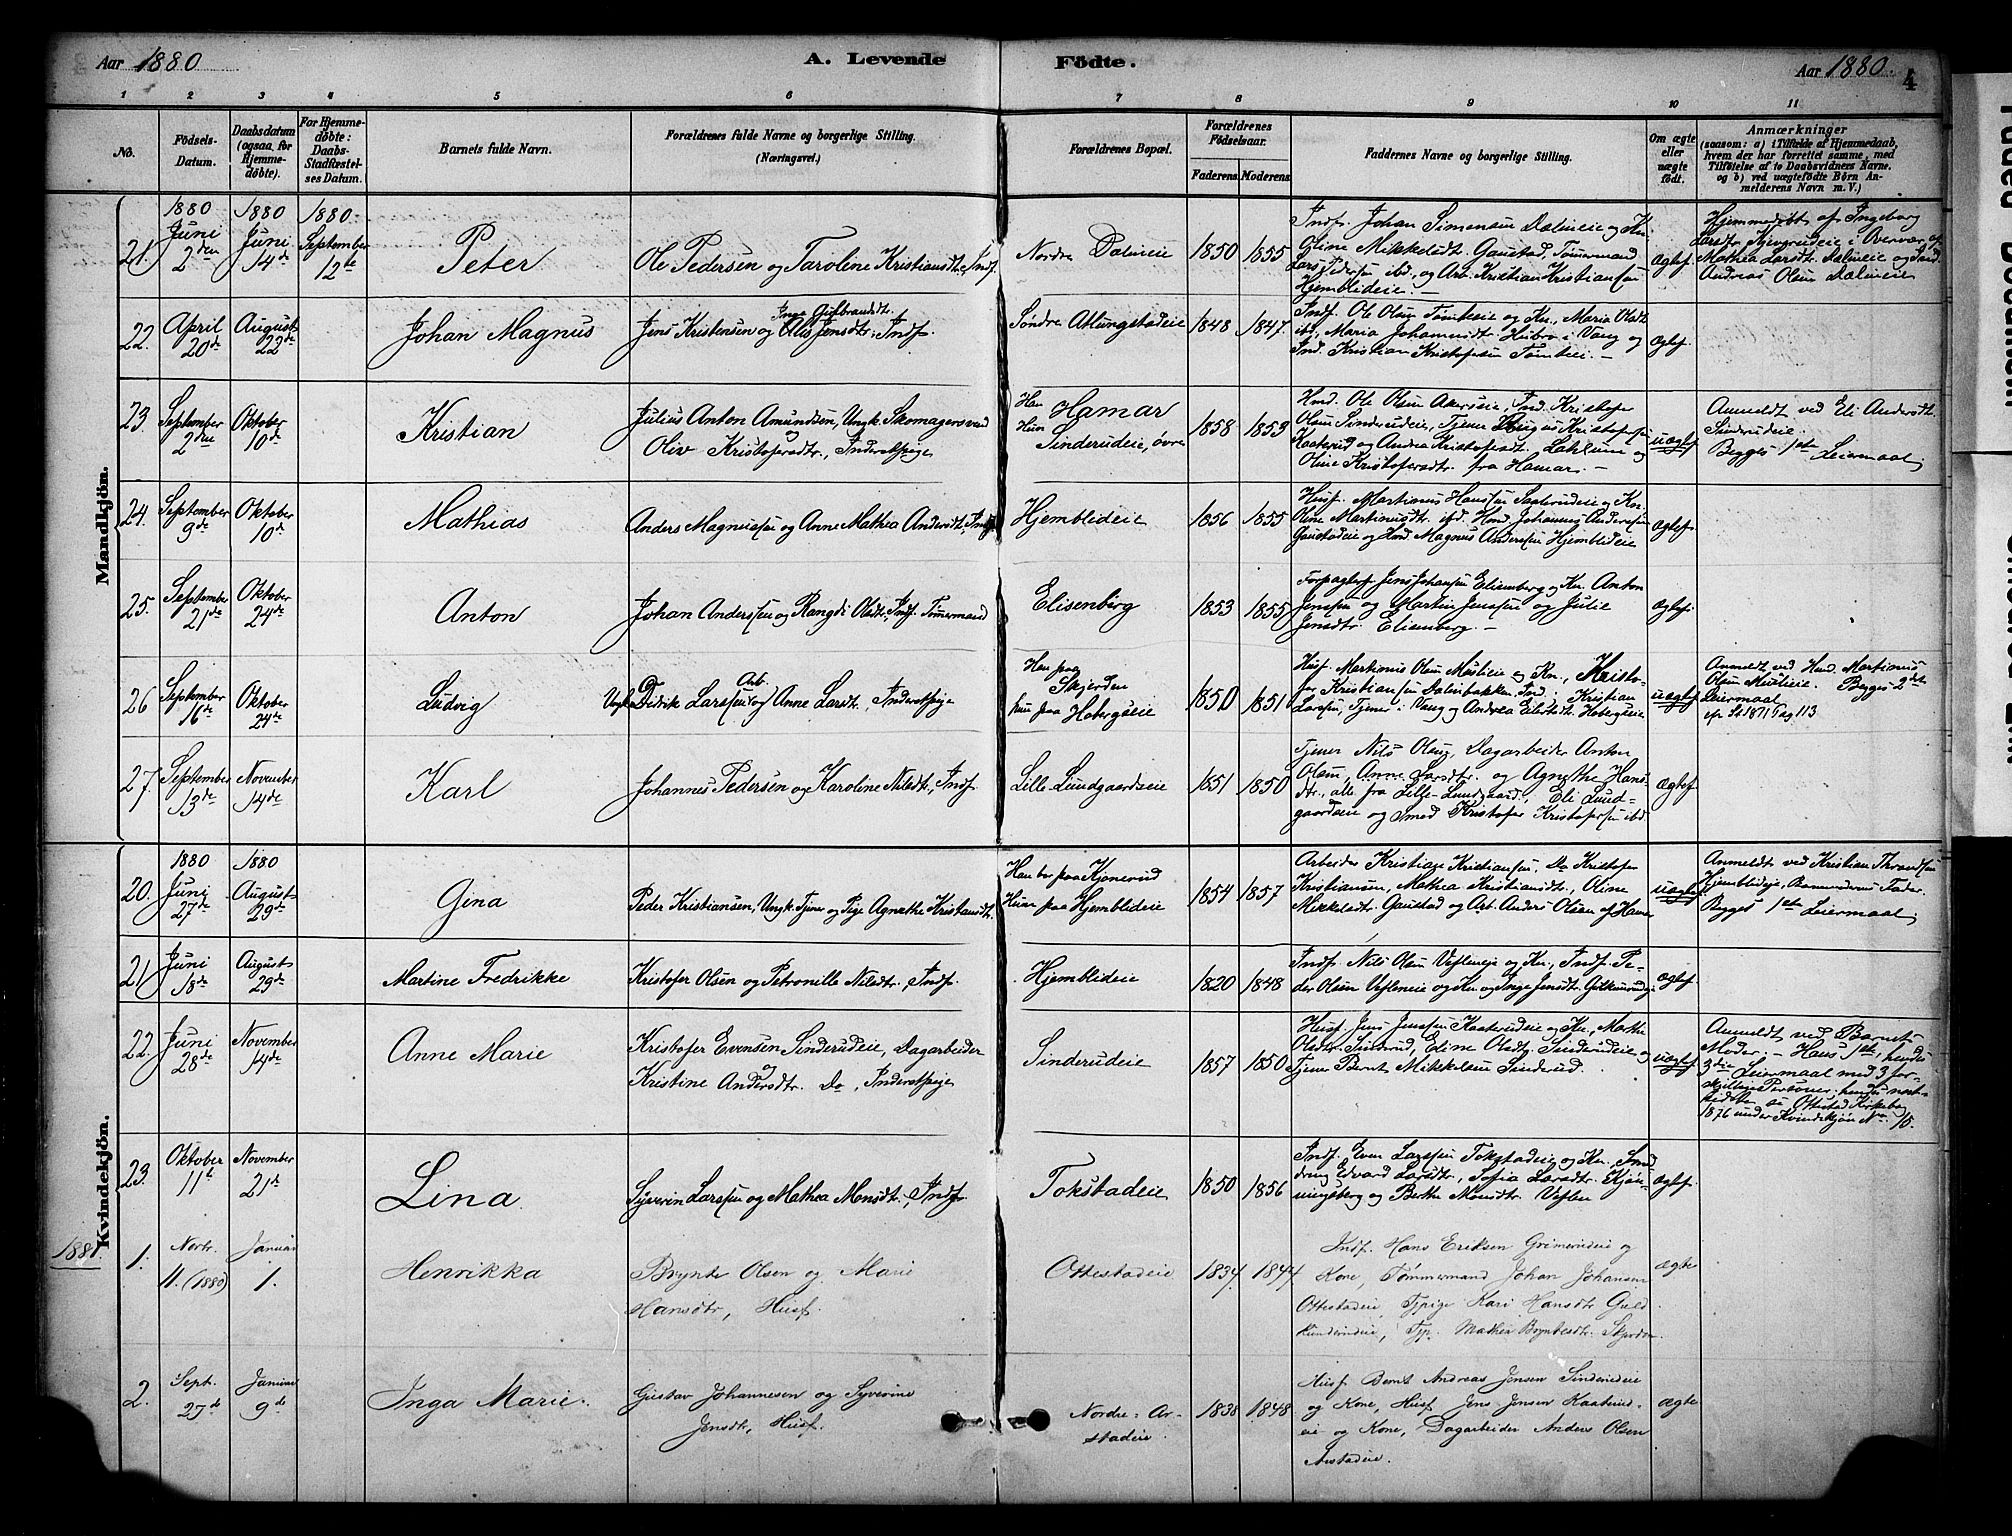 Aar 1880
A. Levende Födte.
Aar 1880.
4
1 2 3 4 5 6 7 8 9 10 11
No.
Födsels-
Datum.
Daabsdatum
(ogsaa for
Hjemme-
døbte).
For Hjemme-
døbte:
Daabs-
Stadfæstel-
ses Datum.
Barnets fulde Navn.
Forældrenes fulde Navne og borgerlige Stilling.
(Næringsvei.)
Forældrenes Bopæl.
Forældrenes
Födselsaar.
Faderens. Moderens.
Faddernes Navne og borgerlige Stilling.
Om ægte
eller
uægte
født.
Anmærkninger
(saasom: a) i Tilfælde af Hjemmedaab,
hvem der har forrettet samme, med
Tilføielse af to Daabsvidners Navne.
og b) ved uægtefødte Børn An-
melderens Navn m. V.)
Mandkjön.
1880 1880 1880
21. Juni 2den
Juni 14de
September 12te
Peter
Ole Pedersen og Taroline Kristiansdtr., Indf.
Nordre Dalineie
1850 1855
Indf. Johan Simensen Dælineie og Kn.
Oline Mikkelsdt. Gaustad, Tømmermand
Lars Pedersen ibd., og Arb. Kristian Kristiansen
Hjemblideie. —
Ægtef.
Hjemmedøbt af Ingeborg
Mathea Larsdt. Dælineie og Ind.
Andreas Olsen Dælineie
22. April 20de
August 22de
Johan Magnus
Inga Gulbrandsdt.
Jens Kristensen og Indf.
Søndre Atlungstadeie
1848 1847.
Indf. Ole Olsen Tomteeie og Kn., Maria Olsdt.
ibd., Maria Johannesdt. Hubro i Vang og
Ind. Kristian Kristofersen Tomteei. —
Ægtef.
23 September 2den
Oktober 10de
Kristian
Julius Anton Amundsen, Ungk. Skomagersvend
og
Oliv Kristofersdtr., Inderstpige
Han Hamar
Hun Sinderudeie, øvre
1858 1853
Hmd. Ole Olsen Akersveie, Ind. Kristofer
Olsen Sinderudeie, Tjener
Kaaterud og Andrea Kristofersdt. Lahlum og
Oline Kristofersdtr. fra Hamar. —
uægtef.
Anmeldt ved Eli Andersdt.
Sinderudeie.
Begges 1ste Leiermaal
24. September 9de
Oktober 10de
Mathias
Anders Magnussen og Anne Mathea Andersdt., Indf.
Hjemblideie
1856 1855
Husf. Martinus Hanssen Saaterudeie og Kn.
Oline Martinusdtr. ibd. Hmd. Johannes Anderssen
Gaustadeie og Hmd. Magnus Anderssen Hjemblideie
Ægtef.
25. September 21de
Oktober 24de
Anton
Johan Anderssen og Rangdi Olsdt., Indf. Tømmermand
Elisenberg
1853 1855
Forpagter Jens Johansen Elisenberg og Kn. Anton
Jenssen og Martin Jenssen og Julie
Jensdtr. Elisenberg. —
Ægtef.
26 September 16de
Oktober 24de
Ludvig
Arb.
Ungk. Didrik Larssen og Anne Larsdt. Inderstpige
Han paa
Skjerden
hun paa Hobergseie
1850 1851
Husf. Martinus Olsen Muslieie og Kn., Kristo-
fer Kristiansen Dalenbakken, Ind. Kristian
Larssen, Tjener i Vang og Andrea Eilertsdt. Hobergseie
uægtef.
Anmeldt ved Hmd. Martinus
Olsen Muslieie. Begges 2det
Leiermaal
cfr. 1871 Pag 113
27. September 13de
November 14de
Karl
Johannes Pedersen og Karoline Nilsdt., Indf.
Lille-Lundgaardseie
1851 1850
Tjener Nils Olsen, Dagarbeider Anton
Olsen, Anne Larsdtr. og Agnethe Hans-
dtr., alle fra Lille-Lundgaard., Eli Lund-
gaardseie og Smed Kristofer Kristofersen ibd.
Ægtef.
Kvindekjön.
1880 1880
20. Juni 27de
August 29de
Gina
Peder Kristiansen, Ungk. Tjener og Pige Agnethe Kristiansdt.
Han bor paa Kjonerud
Hun paa Hjemblideie
1854 1857
Arbeider Kristian Kristiansen, Do Kristofer
Kristiansen, Mathea Kristiansdt., Oline
Mikkelsdt. Gaustad og Arb. Anders Olsen af Hamar
uægtef.
Anmeldt ved Kristian
Hjemblideie, Barnemoderens Fader.
Begges 1ste Leiermaal
21. Juni 18de
August 29de
Martine Fredrikke
Kristofer Olsen og Petronille Nilsdtr. Indf.
Hjemblideie
1820 1848
Indf. Nils Olsen Vesleneie og Kn., Indf. Pe-
der Olsen Vesleneie og Kn. og Inge Jensdt.
ægtef.
22. Juni 28de
November 14de
Anne Marie
Kristofer Evensen Sinderudeie, Dagarbeider
og
Kristine Andersdtr. Do, Inderstpige
Sinderudeie
1857 1850
Husf. Jens Jenssen Kaaterudeie og Kn., Marthe
Olsdtr. Sinderud, Eline Olsdtr. Sinderudeie og
Tjener Bernt Mikkelsen Sinderud.
uægtef.
Anmeldt ved Barnets
Moder; — Hans 1ste, hendes
3die Leiermaal med 3 for-
skjellige Personer; hendes næst-
sidste se Ottestad Kirkebog
1876 under Kvindekjøn No 15.
23. Oktober 11te
November 21de
Lina
Syverin Larssen og Mathea Monsdt., Indf.
Tokstadeie
1850 1856
Indf. Even Larssen Tokstadeie og Kn., Smd
dreng Edvard Larsdtr., Sofia Larsdtr. Kjøn-
ningsberg og Berthe Monsdtr. Veflen
Ægtef.
1881.
1. Novbr. 11. (1880)
Januar 1.
Henrikka
Brynte Olsen og Marie
Hansdtr, Husf.
Ottestadeie
1834 1844
Indf. Hans Eriksen Grimerudeie og
Kone, Tømmermand Johan Johansen
Ottestadeie, Tjpige Kari Hansdtr Guld
Tjp. Mathea Bryntesdtr. Skjerden.
ægte
2. Sept. 27de
Januar 9de
Inga Marie.
Gustav Johannesen og Syverine
Jensdtr, Husf.
Nordre-Ar-
stadeie.
1838 1848
Husf Bernt Andreas Jensen Sinderudeie
og Kone, Husf. Jens Jensen Kaaterud-
eie og Kone, Dagarbeider Anders Olsen
Arstadeie.
ægte